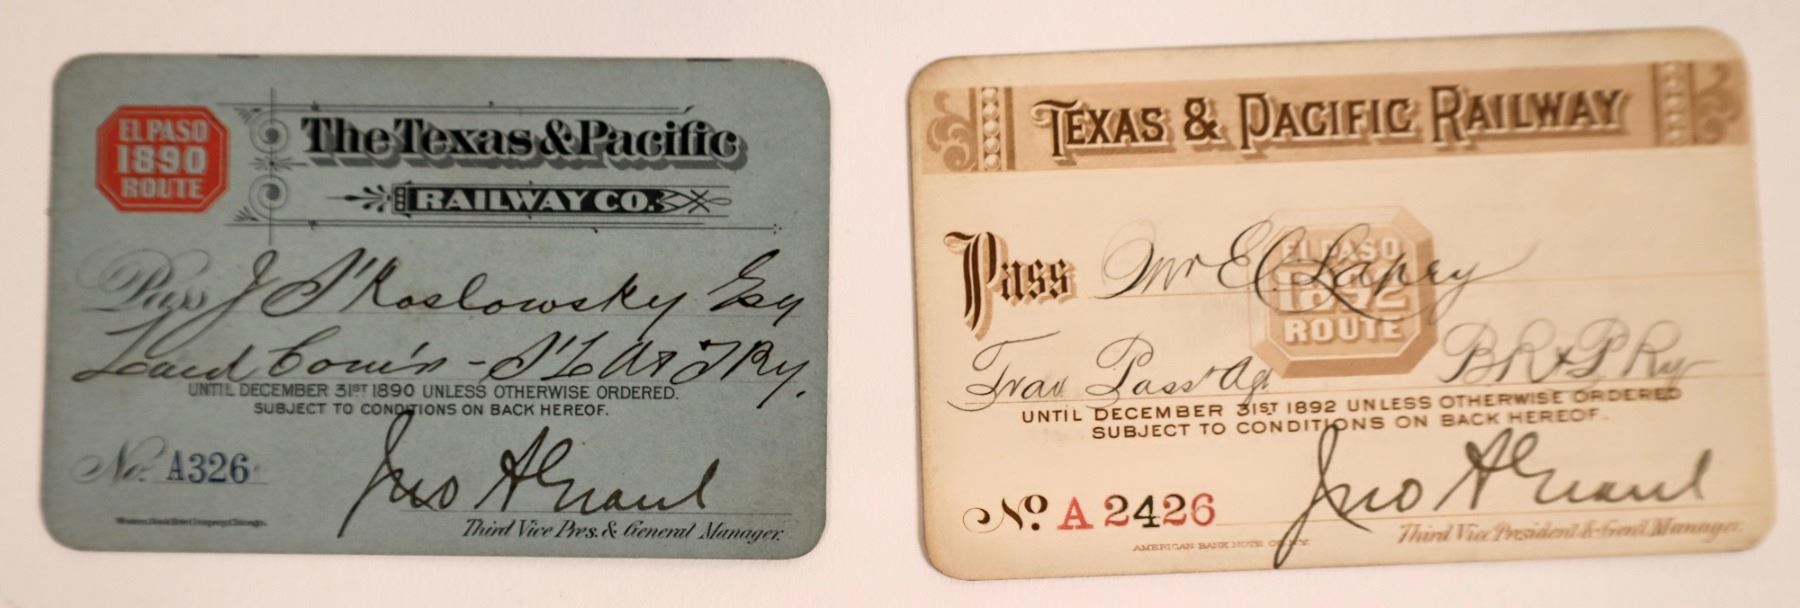 EL PASO
1890
ROUTE
The Texas & Pacific
RAILWAY CO.
Pass J S Koslowsky Esq
Land Com'r - St L A & T Ry.
UNTIL DECEMBER 31ST 1890 UNLESS OTHERWISE ORDERED.
SUBJECT TO CONDITIONS ON BACK HEREOF.
No. A326
Jno A Grant
Third Vice Pres. & General Manager.
Western Bank Note Company, Chicago.
TEXAS & PACIFIC RAILWAY
EL PASO
1892
ROUTE
Pass Mr E C Lapey
Trav Pass Agt B R & P Ry
UNTIL DECEMBER 31ST 1892 UNLESS OTHERWISE ORDERED
SUBJECT TO CONDITIONS ON BACK HEREOF.
No. A 2426
Jno A Grant
Third Vice President & Genl. Manager.
AMERICAN BANK NOTE CO. N.Y.